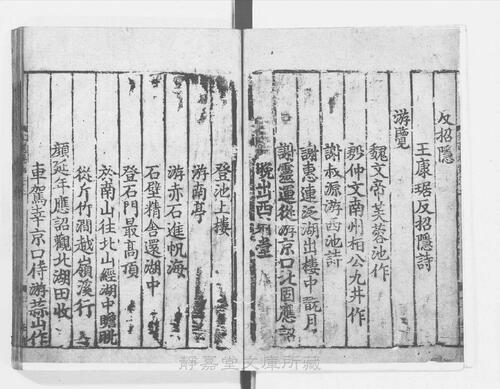 反招隐
王康琚反招隐詩
游覽
魏文帝芙蓉池作
殷仲文南州桓公九井作
謝叔源游西池詩
謝惠連泛湖出樓中翫月
謝靈運從游京口北固應詔
晚出西射堂
登池上樓
游南亭
游赤石進帆海
石壁精舍還湖中
登石門最高頂
於南山往北山經湖中瞻眺
從斤竹澗越嶺溪行
顔延年應詔觀北湖田收
車駕幸京口侍游蒜山作
靜嘉堂文庫所藏